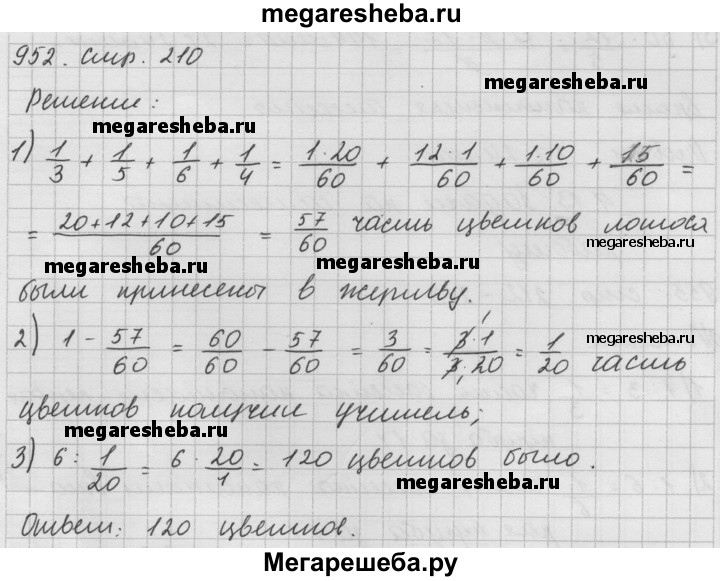 megaresheba.ru
952. стр. 210
megaresheba.ru
Решение:
megaresheba.ru
1) 1/3 + 1/5 + 1/6 + 1/4 = 1·20/60 + 12·1/60 + 1·10/60 + 15/60 =
= 20+12+10+15/60 = 57/60 часть цветков лотоса
megaresheba.ru
megaresheba.ru
были принесены в жертву.
2) 1 - 57/60 = 60/60 - 57/60 = 3/60 = 3·1/3·20 = 1/20 часть
megaresheba.ru
цветков получил учитель;
megaresheba.ru
3) 6 : 1/20 = 6 · 20/1 = 120 цветков было.
megaresheba.ru
Ответ: 120 цветков.
Мегарешеба.ру